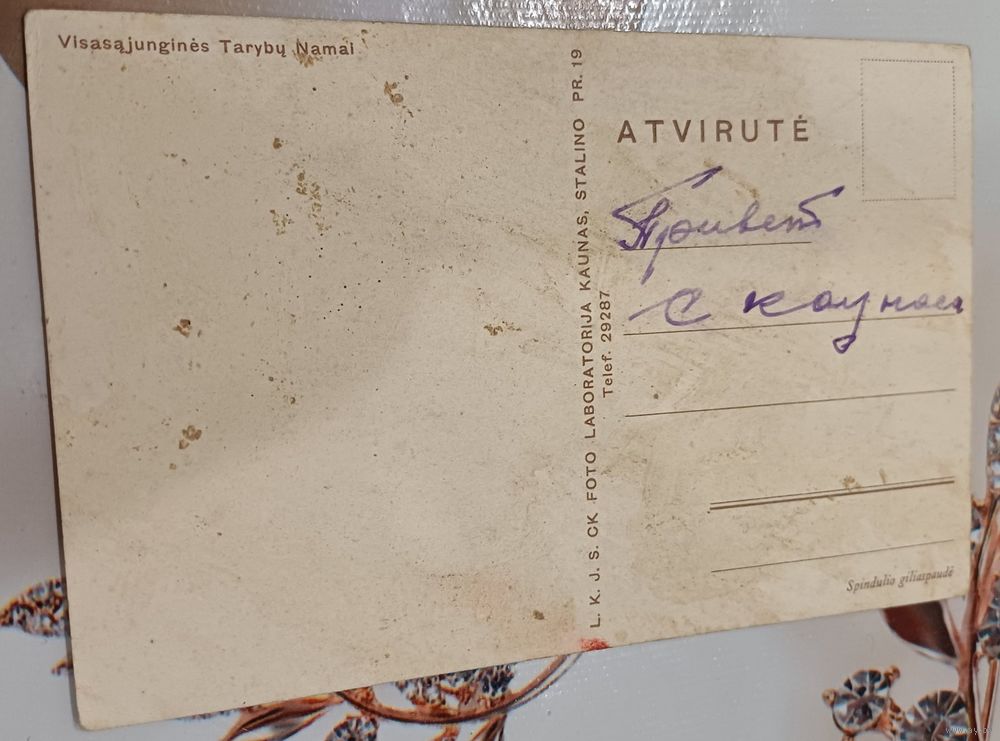 Visasąjunginės Tarybų Namai
L. K. J. S. CK FOTO LABORATORIJA KAUNAS, STALINO PR. 19
Telef. 29287
ATVIRUTĖ
Привет
с Каунаса
Spindulio giliaspaudė